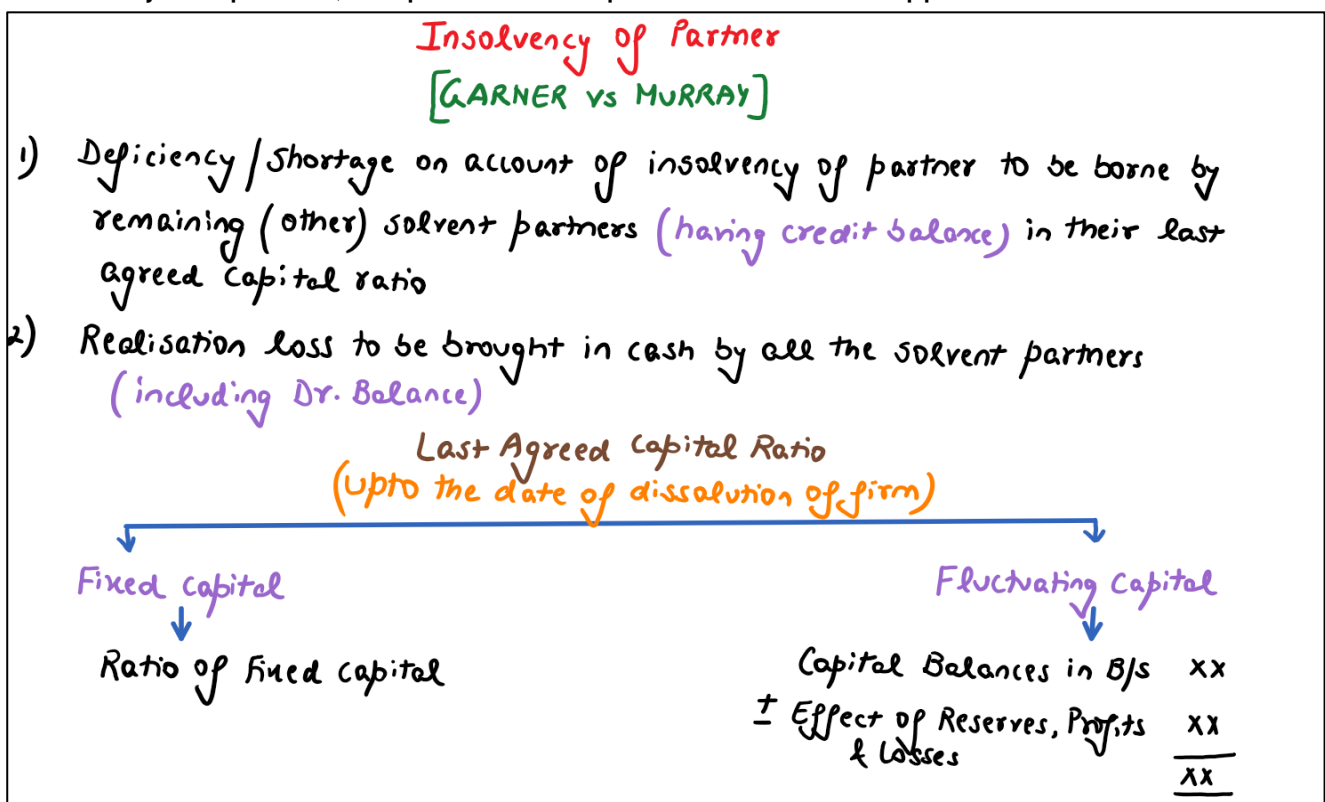 Insolvency of Partner
[GARNER vs MURRAY]
1) Deficiency / Shortage on account of insolvency of partner to be borne by
remaining (other) solvent partners (having credit balance) in their last
agreed capital ratio
2) Realisation loss to be brought in cash by all the solvent partners
(including Dr. Balance)
Last Agreed Capital Ratio
(upto the date of dissolution of firm)
Fixed capital
Fluctuating Capital
Ratio of Fixed capital
Capital Balances in B/s xx
± Effect of Reserves, Profits xx
& Losses
xx